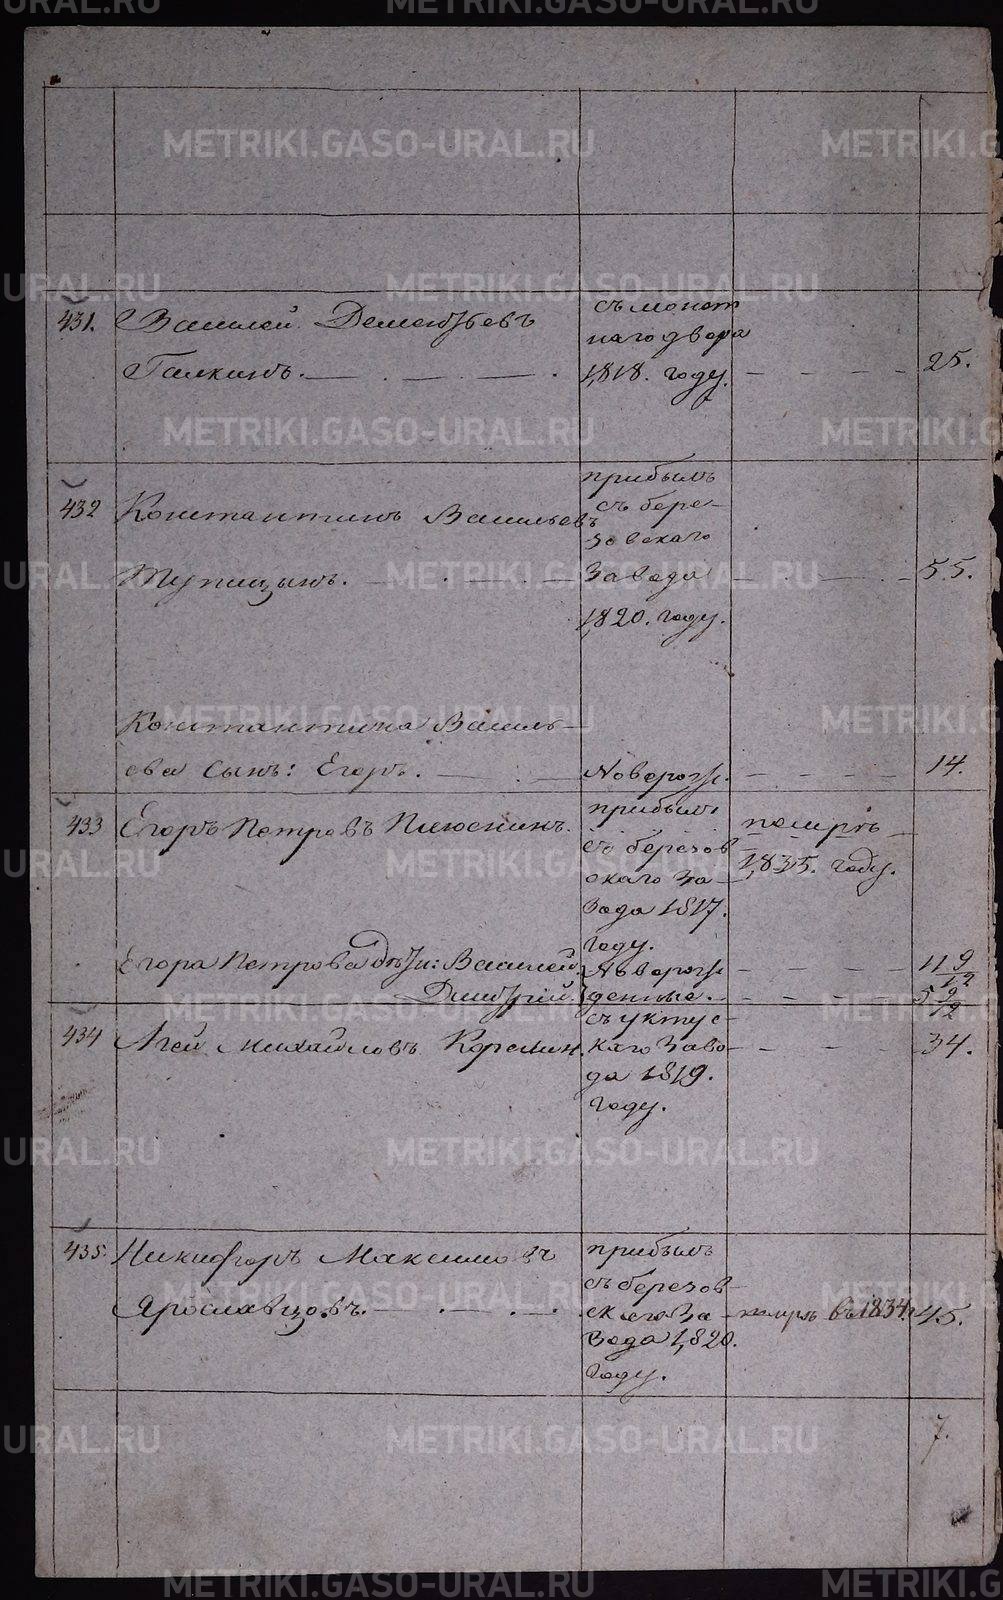 431. Василей Дементьевъ
Галкинъ.
съ монет
наго двора
1818. году.
25.
432 Константинъ Васильевъ
Тупицынъ.
прибылъ
съ бере-
зовскаго
Завода
1820. году.
55.
Константина Василь-
ева сынъ: Егоръ.
Новорож.
14.
433 Егоръ Петровъ Плюснинъ.
прибылъ
съ березов
скаго За-
вода 1817.
году.
помръ
1835. году.
Егора Петрова дѣти: Василей.
Дмитрій.
Ново рож
денные.
11 9/12
5 9/12
434 Агей Михайловъ
съ уктус-
каго Заво-
да 1819.
году.
34.
435. Никифоръ Максимовъ
Ярославцовъ.
прибылъ
съ березов-
скаго За
вода 1820.
году.
помръ въ 1834.
45.
7.
METRIKI.GASO-URAL.RU